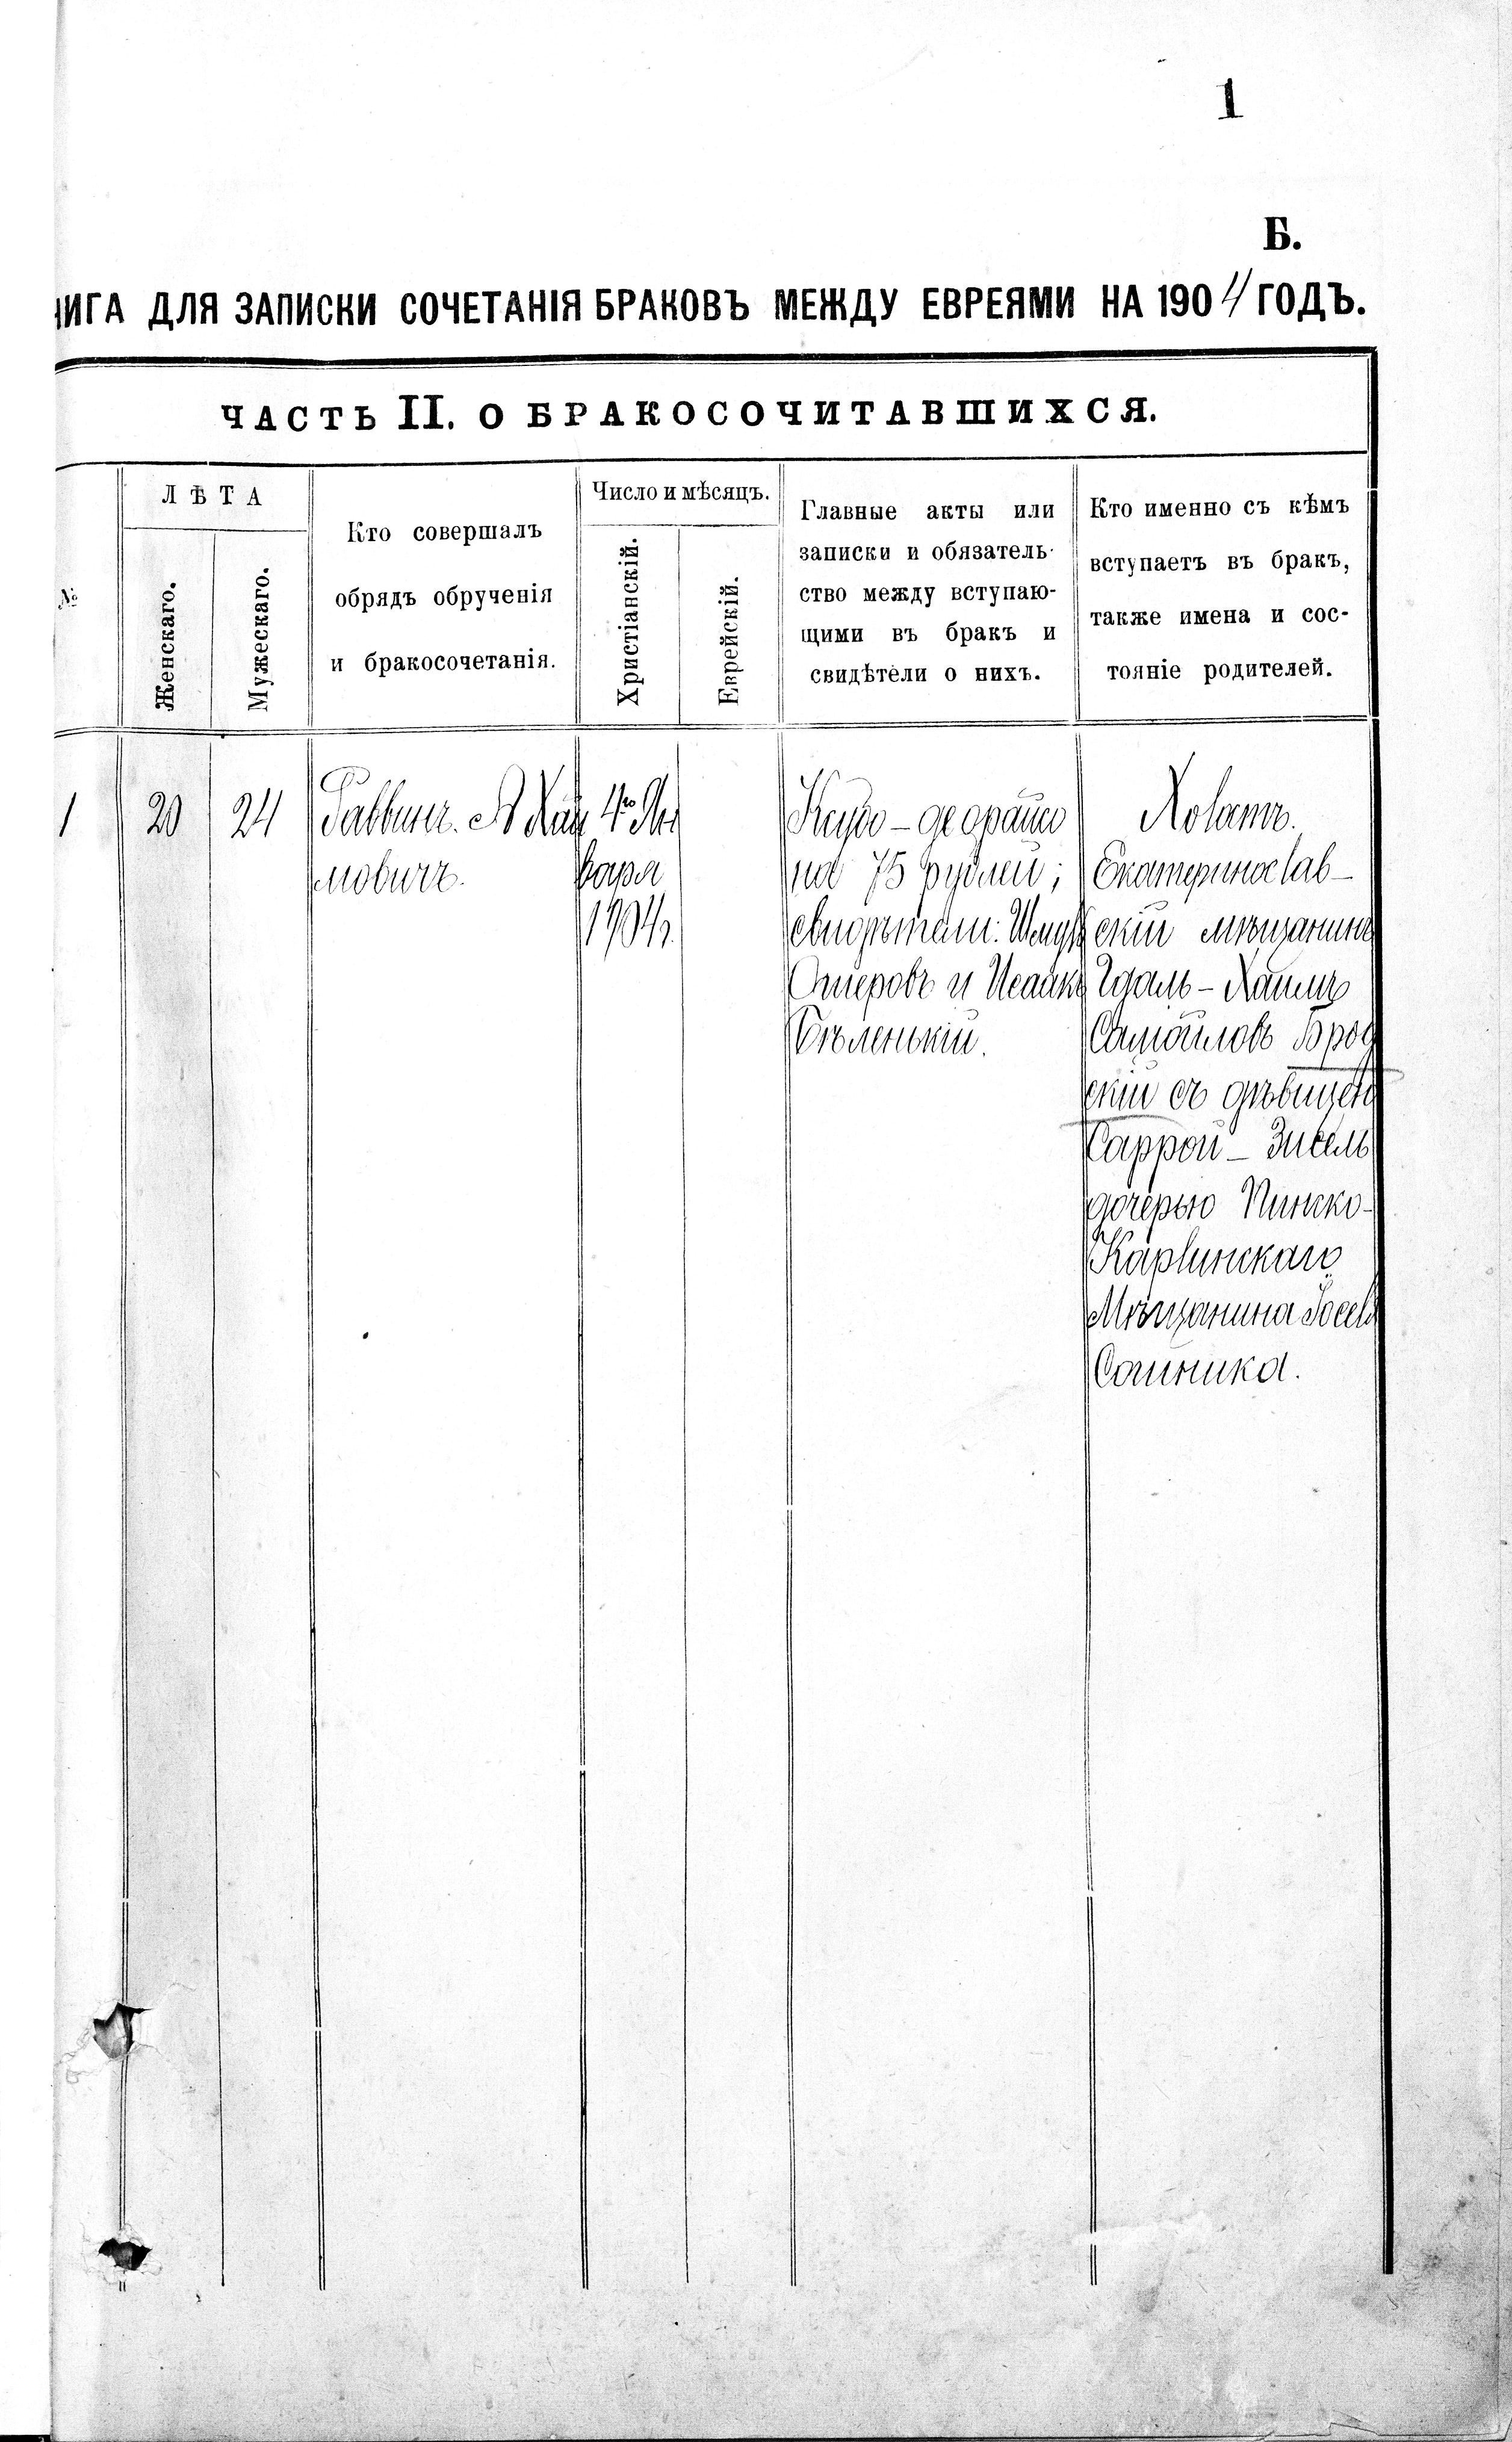 1
Б.
НИГА ДЛЯ ЗАПИСКИ СОЧЕТАНІЯ БРАКОВЪ МЕЖДУ ЕВРЕЯМИ НА 1904 ГОДЪ.
ЧАСТЬ II. О БРАКОСОЧИТАВШИХСЯ.
№
ЛѢТА
Женскаго.
Мужескаго.
Кто совершалъ
обрядъ обрученія
и бракосочетанія.
Число и мѣсяцъ.
Христіанскій.
Еврейскій.
Главные акты или
записки и обязатель-
ство между вступаю-
щими въ бракъ и
свидѣтели о нихъ.
Кто именно съ кѣмъ
вступаетъ въ бракъ,
также имена и сос-
тояніе родителей.
1
20
24
Раввинъ. А Хай
мовичъ.
4го Ян
варя
1904г.
Ксубо-деорайсо
на 75 рублей;
свидѣтели: Шмуль
Ошеровъ и Исаакъ
Бѣленькій.
Холатъ.
Екатеринослав-
скій мѣщанинъ
Гдаль-Хаимъ
Самойловъ Брод
скій съ дѣвицею
Саррой-Зисель
дочерью Пинско-
Карлинскаго
Мѣщанина Іоселя
Сошника.